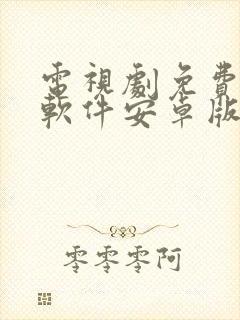 電視劇免費
軟件安卓版
零零零阿